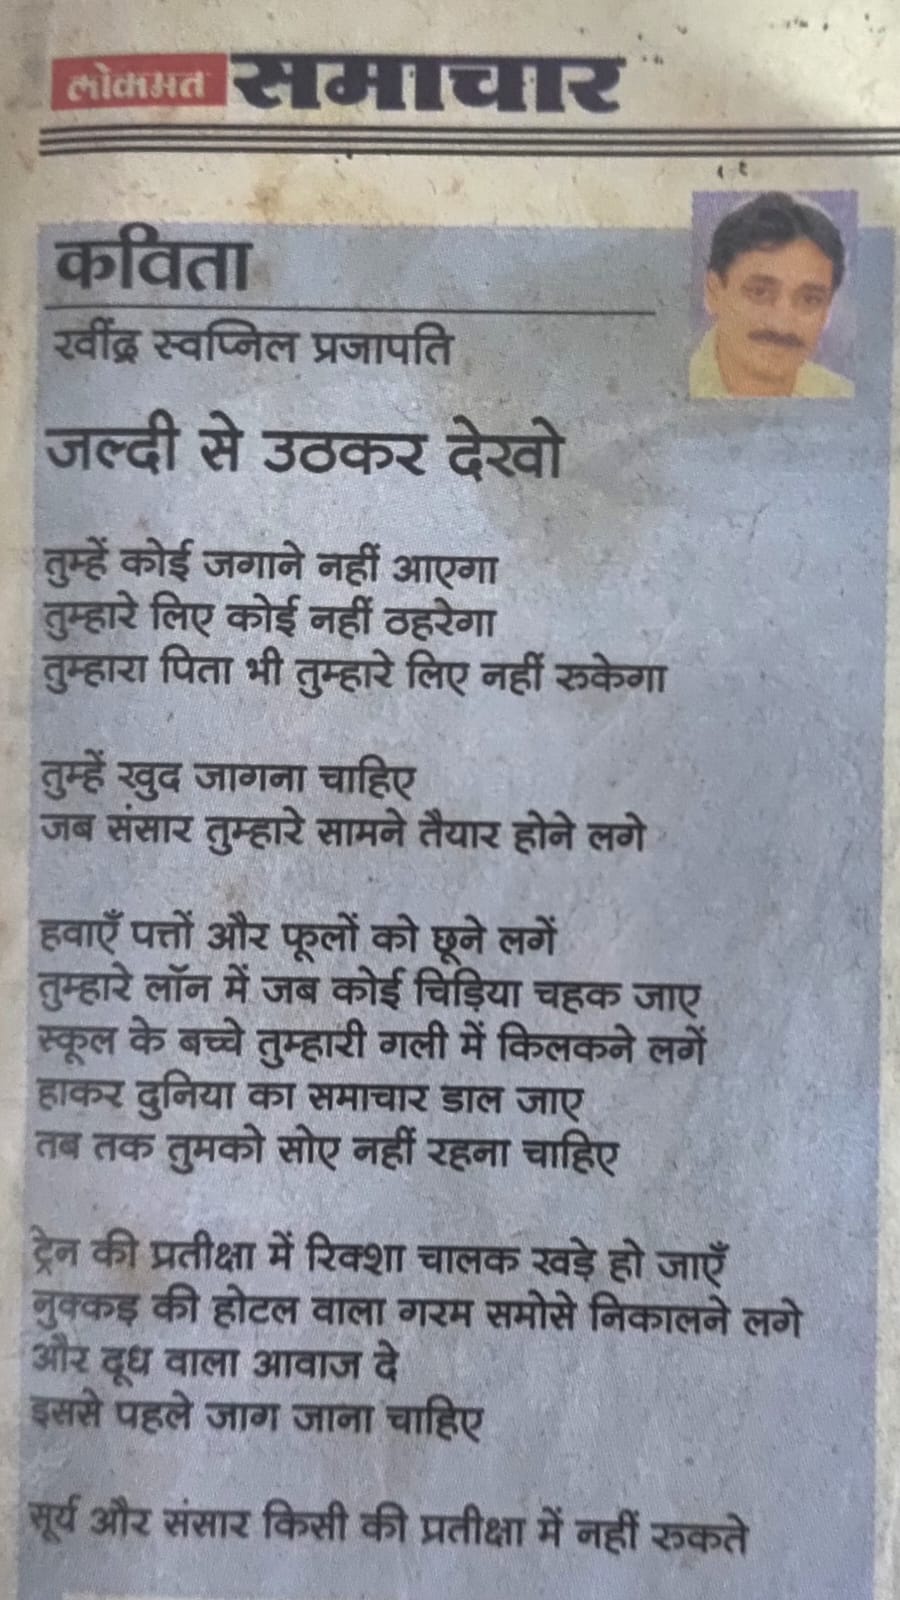 लोकमत समाचार
कविता
रवींद्र स्वप्निल प्रजापति
जल्दी से उठकर देखो
तुम्हें कोई जगाने नहीं आएगा
तुम्हारे लिए कोई नहीं ठहरेगा
तुम्हारा पिता भी तुम्हारे लिए नहीं रुकेगा
तुम्हें खुद जागना चाहिए
जब संसार तुम्हारे सामने तैयार होने लगे
हवाएँ पत्तों और फूलों को छूने लगें
तुम्हारे लॉन में जब कोई चिड़िया चहक जाए
स्कूल के बच्चे तुम्हारी गली में किलकने लगें
हाकर दुनिया का समाचार डाल जाए
तब तक तुमको सोए नहीं रहना चाहिए
ट्रेन की प्रतीक्षा में रिक्शा चालक खड़े हो जाएँ
नुक्कड़ की होटल वाला गरम समोसे निकालने लगे
और दूध वाला आवाज दे
इससे पहले जाग जाना चाहिए
सूर्य और संसार किसी की प्रतीक्षा में नहीं रुकते